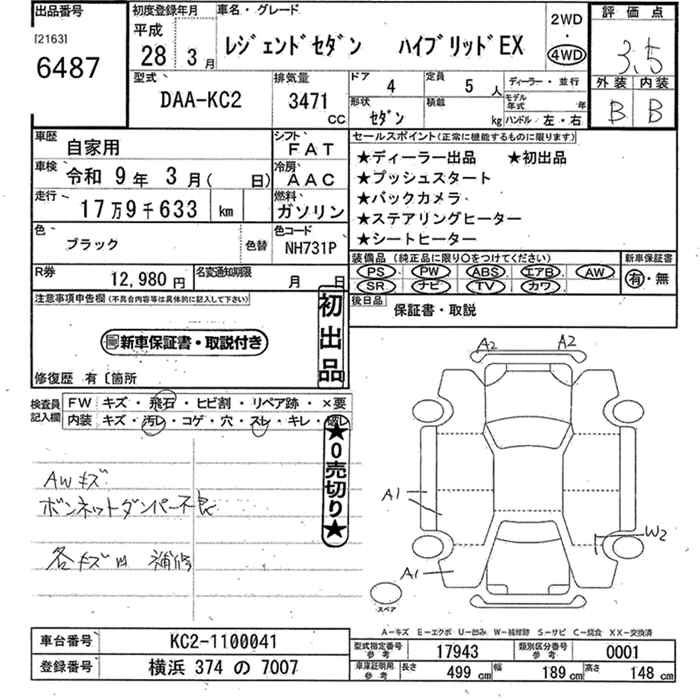 出品番号
[2163]
6487
初度登録年月
平成
28年 3月
車名・グレード
レジェンドセダン ハイブリッドEX
2WD
・
4WD
評価点
3.5
外装 内装
B B
型式
DAA-KC2
排気量
3471
CC
ドア
4
定員
5人
形状
セダン
積載
kg
ディーラー・並行
モデル年式
年
ハンドル 左・右
車歴
自家用
シフト
FAT
車検
令和 9年 3月( 日)
冷房
AAC
走行
17万9千633 km
燃料
ガソリン
色
ブラック
色替
色コード
NH731P
R券
12,980円
名変通知期限
月 日
セールスポイント(正常に機能するものに限ります)
★ディーラー出品 ★初出品
★プッシュスタート
★バックカメラ
★ステアリングヒーター
★シートヒーター
装備品(純正品に限り○をつけてください)
PS・PW・ABS・エアB・AW・
SR・ナビ・TV・カワ・
新車保証書
有・無
後日品
保証書・取説
注意事項申告欄(不具合内容等は具体的に記入して下さい)
新車保証書・取説付き
初出品
修復歴 有〔箇所
検査員
記入欄
FW キズ・飛石・ヒビ割・リペア跡・×要
内装 キズ・汚レ・コゲ・穴・スレ・キレ・
★0売切り★
AWキズ
ボンネットダンパー不良
各キズ凹 補修
A2 A2
A1
W2
A1
スペア
A-キズ E-エクボ U-凹み W-補修跡 S-サビ C-腐食 XX-交換済
車台番号
KC2-1100041
登録番号
横浜 374 の 7007
型式指定番号
参考
17943
類別区分番号
参考
0001
車庫証明用
参考
長さ
499 cm
幅
189 cm
高さ
148 cm